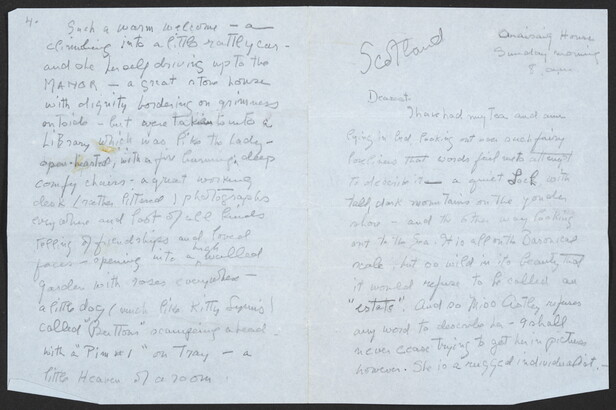 4.
Such a warm welcome — a
climbing into a little rattly car -
and she herself driving up to the
MANOR — a great stone house
with dignity bordering on grimness
outside - but were taken into a
Library which was like the Lady -
open-hearted, with a fire burning, deep
comfy chairs - a great working
desk (rather littered) photographs
everywhere and lots of all kinds
telling of friendships and loved
faces - opening into a high walled
garden with roses everywhere -
a little dog (much like Kitty
called "Buttons" scampering ahead.
with a "Pimms" on Tray — a
little Heaven of a room.
Scotland
House
Sunday morning
8
Dearest
I have had my tea and am
lying in bed, looking out over such fairy
that words fail me to attempt
to describe it — a quiet Loch with
tall dark mountains on the yonder
shore - and the other way looking
out to the Sea. It is all on the Baronial
scale, but so wild in its beauty that
it would refuse to be called an
"estate". And so Miss refuses
any word to describe her - I shall
never cease trying to get her in pictures
however. She is a rugged individualist. -